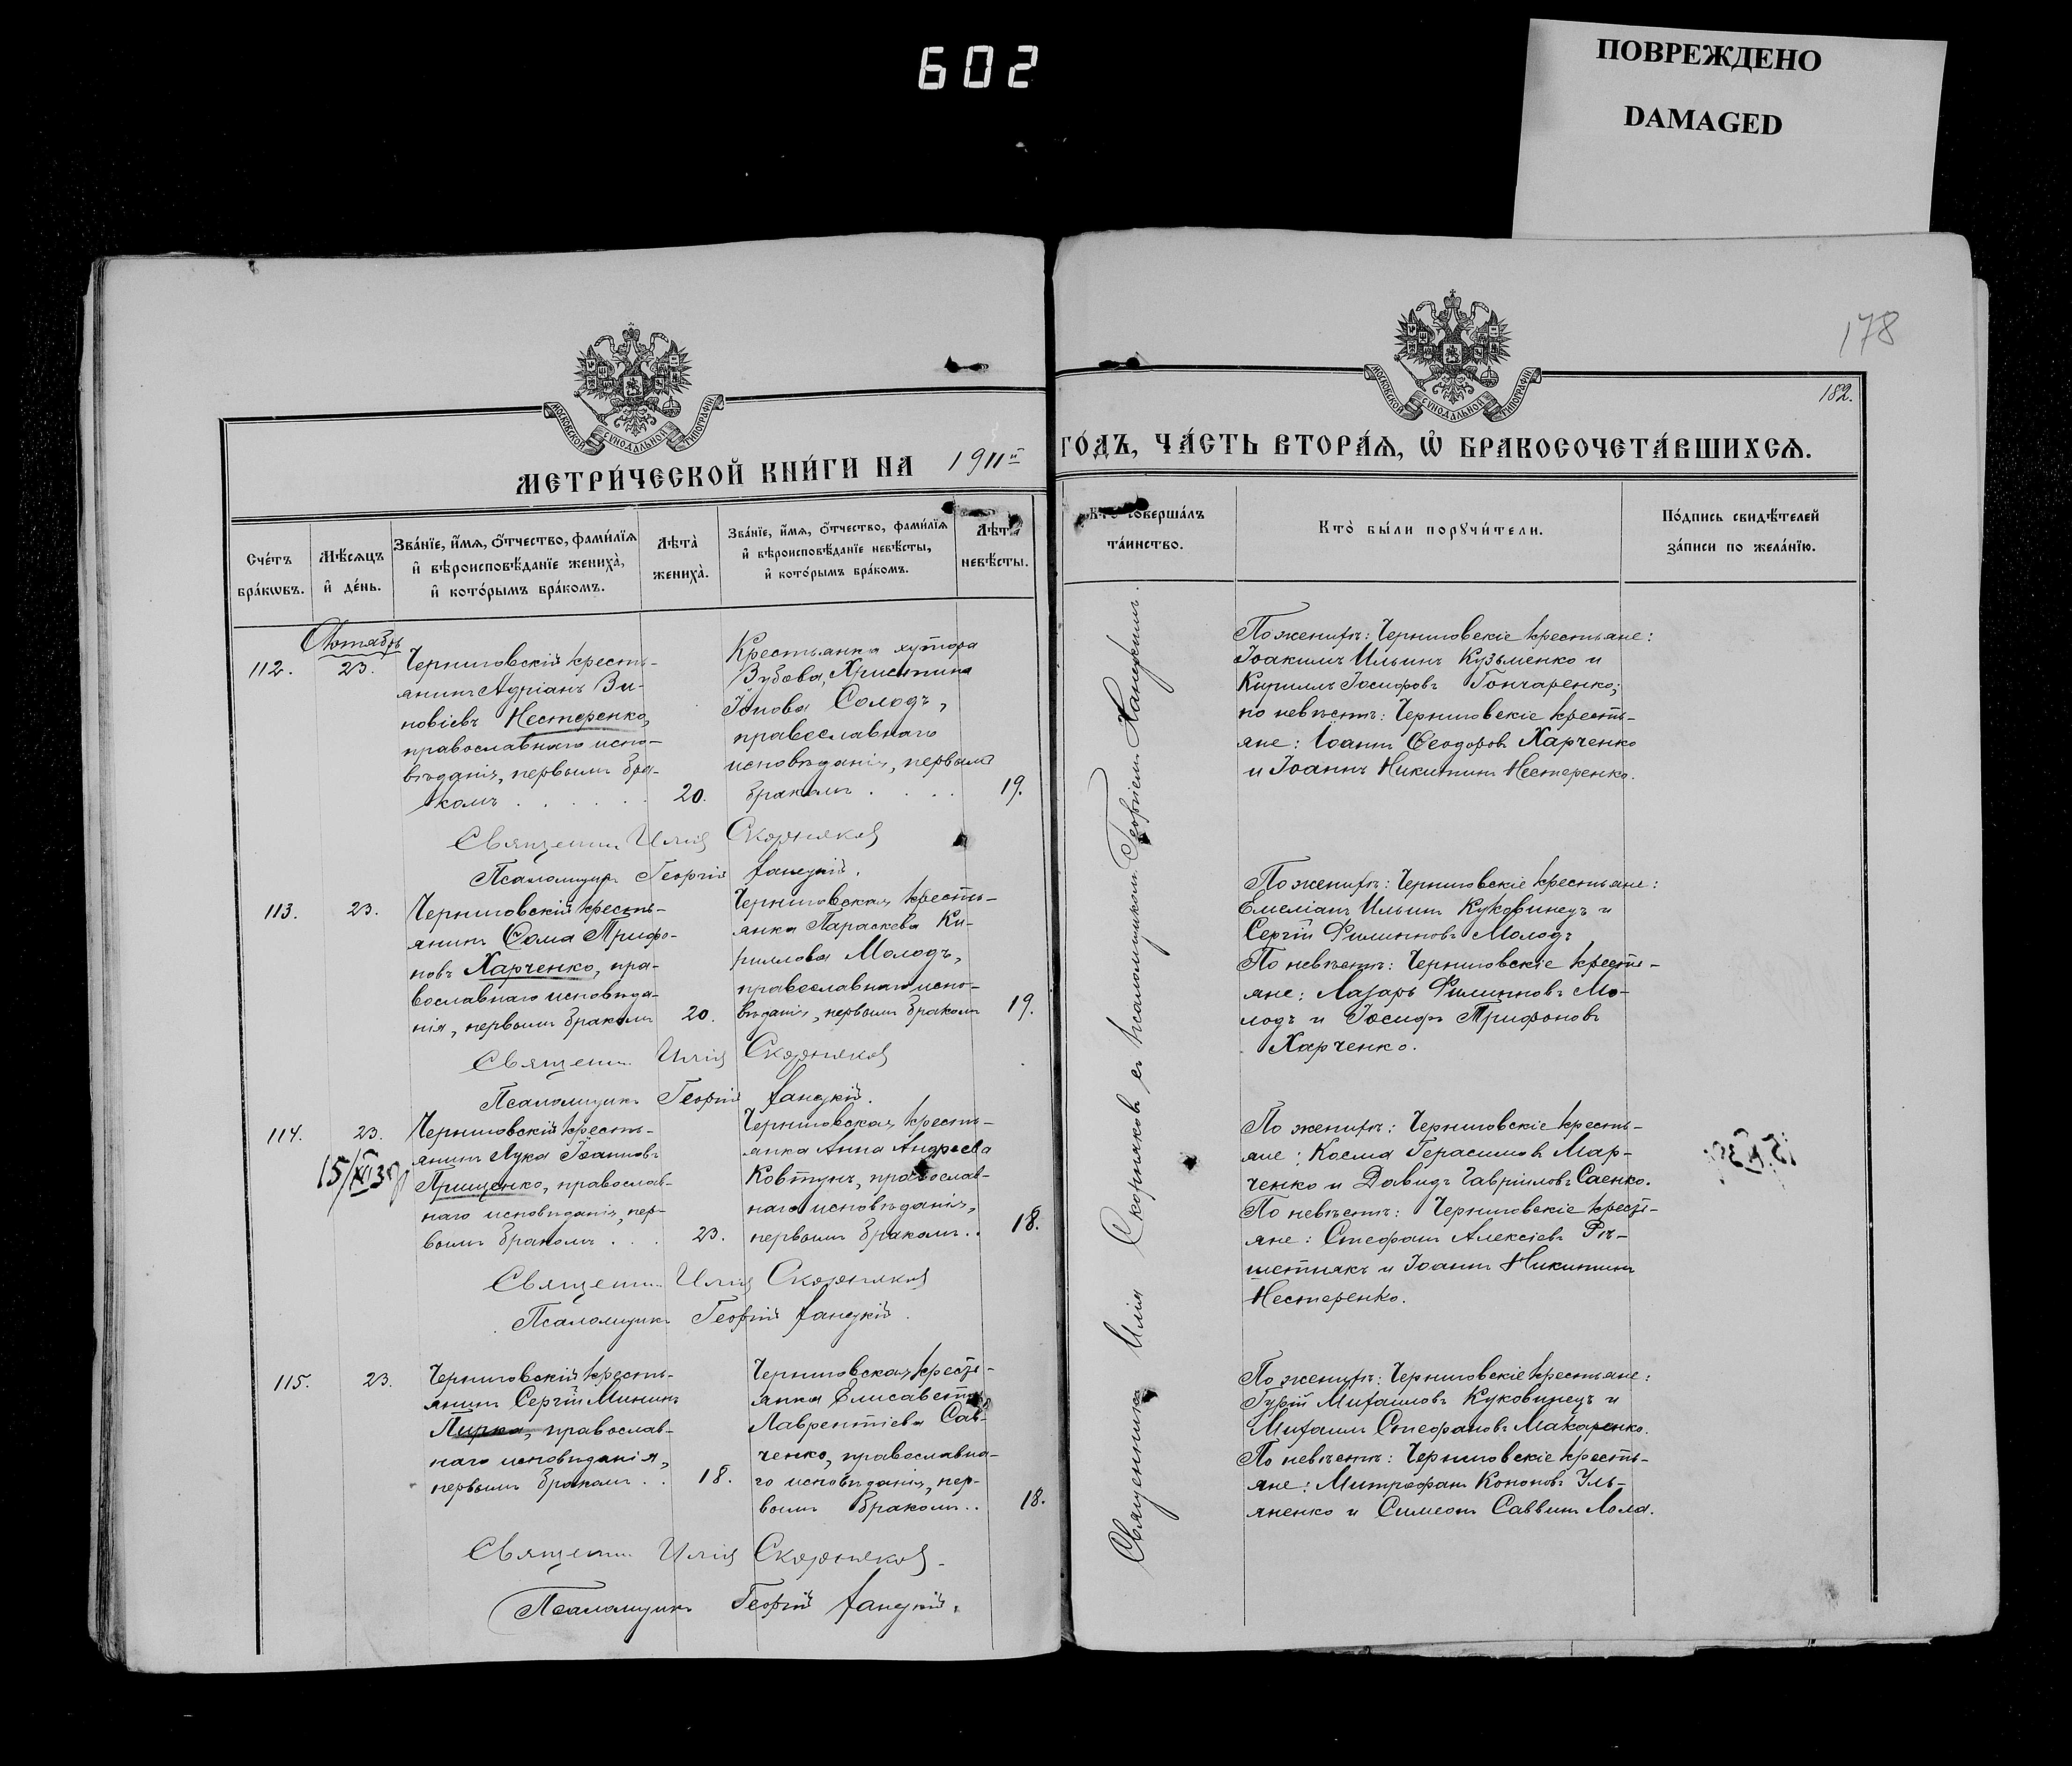 602
ПОВРЕЖДЕНО
DAMAGED
178
182.
МОСКОВСКОЙ СѴНОДАЛЬНОЙ ТИПОГРАФІИ
МОСКОВСКОЙ СѴНОДАЛЬНОЙ ТИПОГРАФІИ
МЕТРИ́ЧЕСКОЙ КНИ́ГИ НА 1911й ГО́ДЪ, ЧА́СТЬ ВТОРА́Ѧ, Ѽ БРАКОСОЧЕТА́ВШИХСѦ.
Сче́тъ
бра́кѡвъ.
Мѣ́сѧцъ
и҆ де́нь.
Зва́нїе, и҆́мѧ, ѻ҆́тчество, фами́лїѧ
и҆ вѣроисповѣ́данїе жениха̀,
и҆ кото́рымъ бра́комъ.
Лѣ́та̀
жениха̀.
Зва́нїе, и҆́мѧ, ѻ҆́тчество, фами́лїѧ
и҆ вѣроисповѣ́данїе невѣ́сты,
и҆ кото́рымъ бра́комъ.
Лѣ́та̀
невѣ́сты.
Кто̀ соверша́лъ
та́инство.
Кто̀ бы́ли порꙋчи́тели.
По́дпись свидѣ́телей
за́писи по жела́нїю.
Октябрь
112.
23.
Черниговскій кресть-
янинъ Адріанъ Зи-
новіевъ Нестеренко,
православнаго испо-
вѣданія, первымъ бра-
комъ . . . . . .
20.
Крестьянка хутора
Зубова, Христина
Іонова Солодъ,
православнаго
исповѣданія, первымъ
бракомъ . . . .
19.
По женихѣ: Черниговскіе крестьяне:
Іоакимъ Ильинъ Кузьменко и
Кириллъ Іосифовъ Гончаренко;
по невѣстѣ: Черниговскіе кресть-
яне: Іоаннъ Ѳеодоровъ Харченко
и Іоаннъ Никитинъ Нестеренко.
Священникъ Илія Скорняковъ
Псаломщикъ Георгій
113.
23.
Черниговскій кресть-
янинъ Ѳома Трифо-
новъ Харченко, пра-
вославнаго исповѣда-
нія, первымъ бракомъ
20.
Черниговская кресть-
янка Параскева Ки-
риллова Молодъ,
православнаго испо-
вѣданія, первымъ бракомъ
19.
По женихѣ: Черниговскіе крестьяне:
Емеліанъ Ильинъ Куковинецъ и
Сергій Филипповъ Молодъ
По невѣстѣ: Черниговскіе кресть-
яне: Лазарь Филипповъ Мо-
лодъ и Іосифъ Трифоновъ
Харченко.
Священникъ Илія Скорняковъ
Псаломщикъ Георгій
114.
23.
Черниговскій кресть-
янинъ Лука Іоанновъ
Прищенко, православ-
наго исповѣданія, пер-
вымъ бракомъ . . .
23.
Черниговская кресть-
янка Анна Андреева
Ковтунъ, православ-
наго исповѣданія,
первымъ бракомъ . .
18.
По женихѣ: Черниговскіе кресть-
яне: Косма Герасимовъ Мар-
ченко и Давидъ Гавріиловъ Саенко.
По невѣстѣ: Черниговскіе кресть-
яне: Стефанъ Алексіевъ Рѣ-
шетнякъ и Іоаннъ Никитинъ
Нестеренко.
Священникъ Илія Скорняковъ
Псаломщикъ Георгій
115.
23.
Черниговскій кресть-
янинъ Сергій Мининъ
Пирка, православ-
наго исповѣданія,
первымъ бракомъ . .
18.
Черниговская кресть-
янка Елисавета
Лаврентіева Сав-
ченко, православна-
го исповѣданія, пер-
вымъ бракомъ . .
18.
По женихѣ: Черниговскіе крестьяне:
Гурій Михаиловъ Куковинецъ и
Михаилъ Стефановъ Макаренко.
По невѣстѣ: Черниговскіе кресть-
яне: Митрофанъ Кононовъ Уль-
яненко и Симеонъ Саввинъ Лола.
Священникъ Илія Скорняковъ
Псаломщикъ Георгій
Священникъ Илія Скорняковъ съ псаломщикомъ Георгіемъ